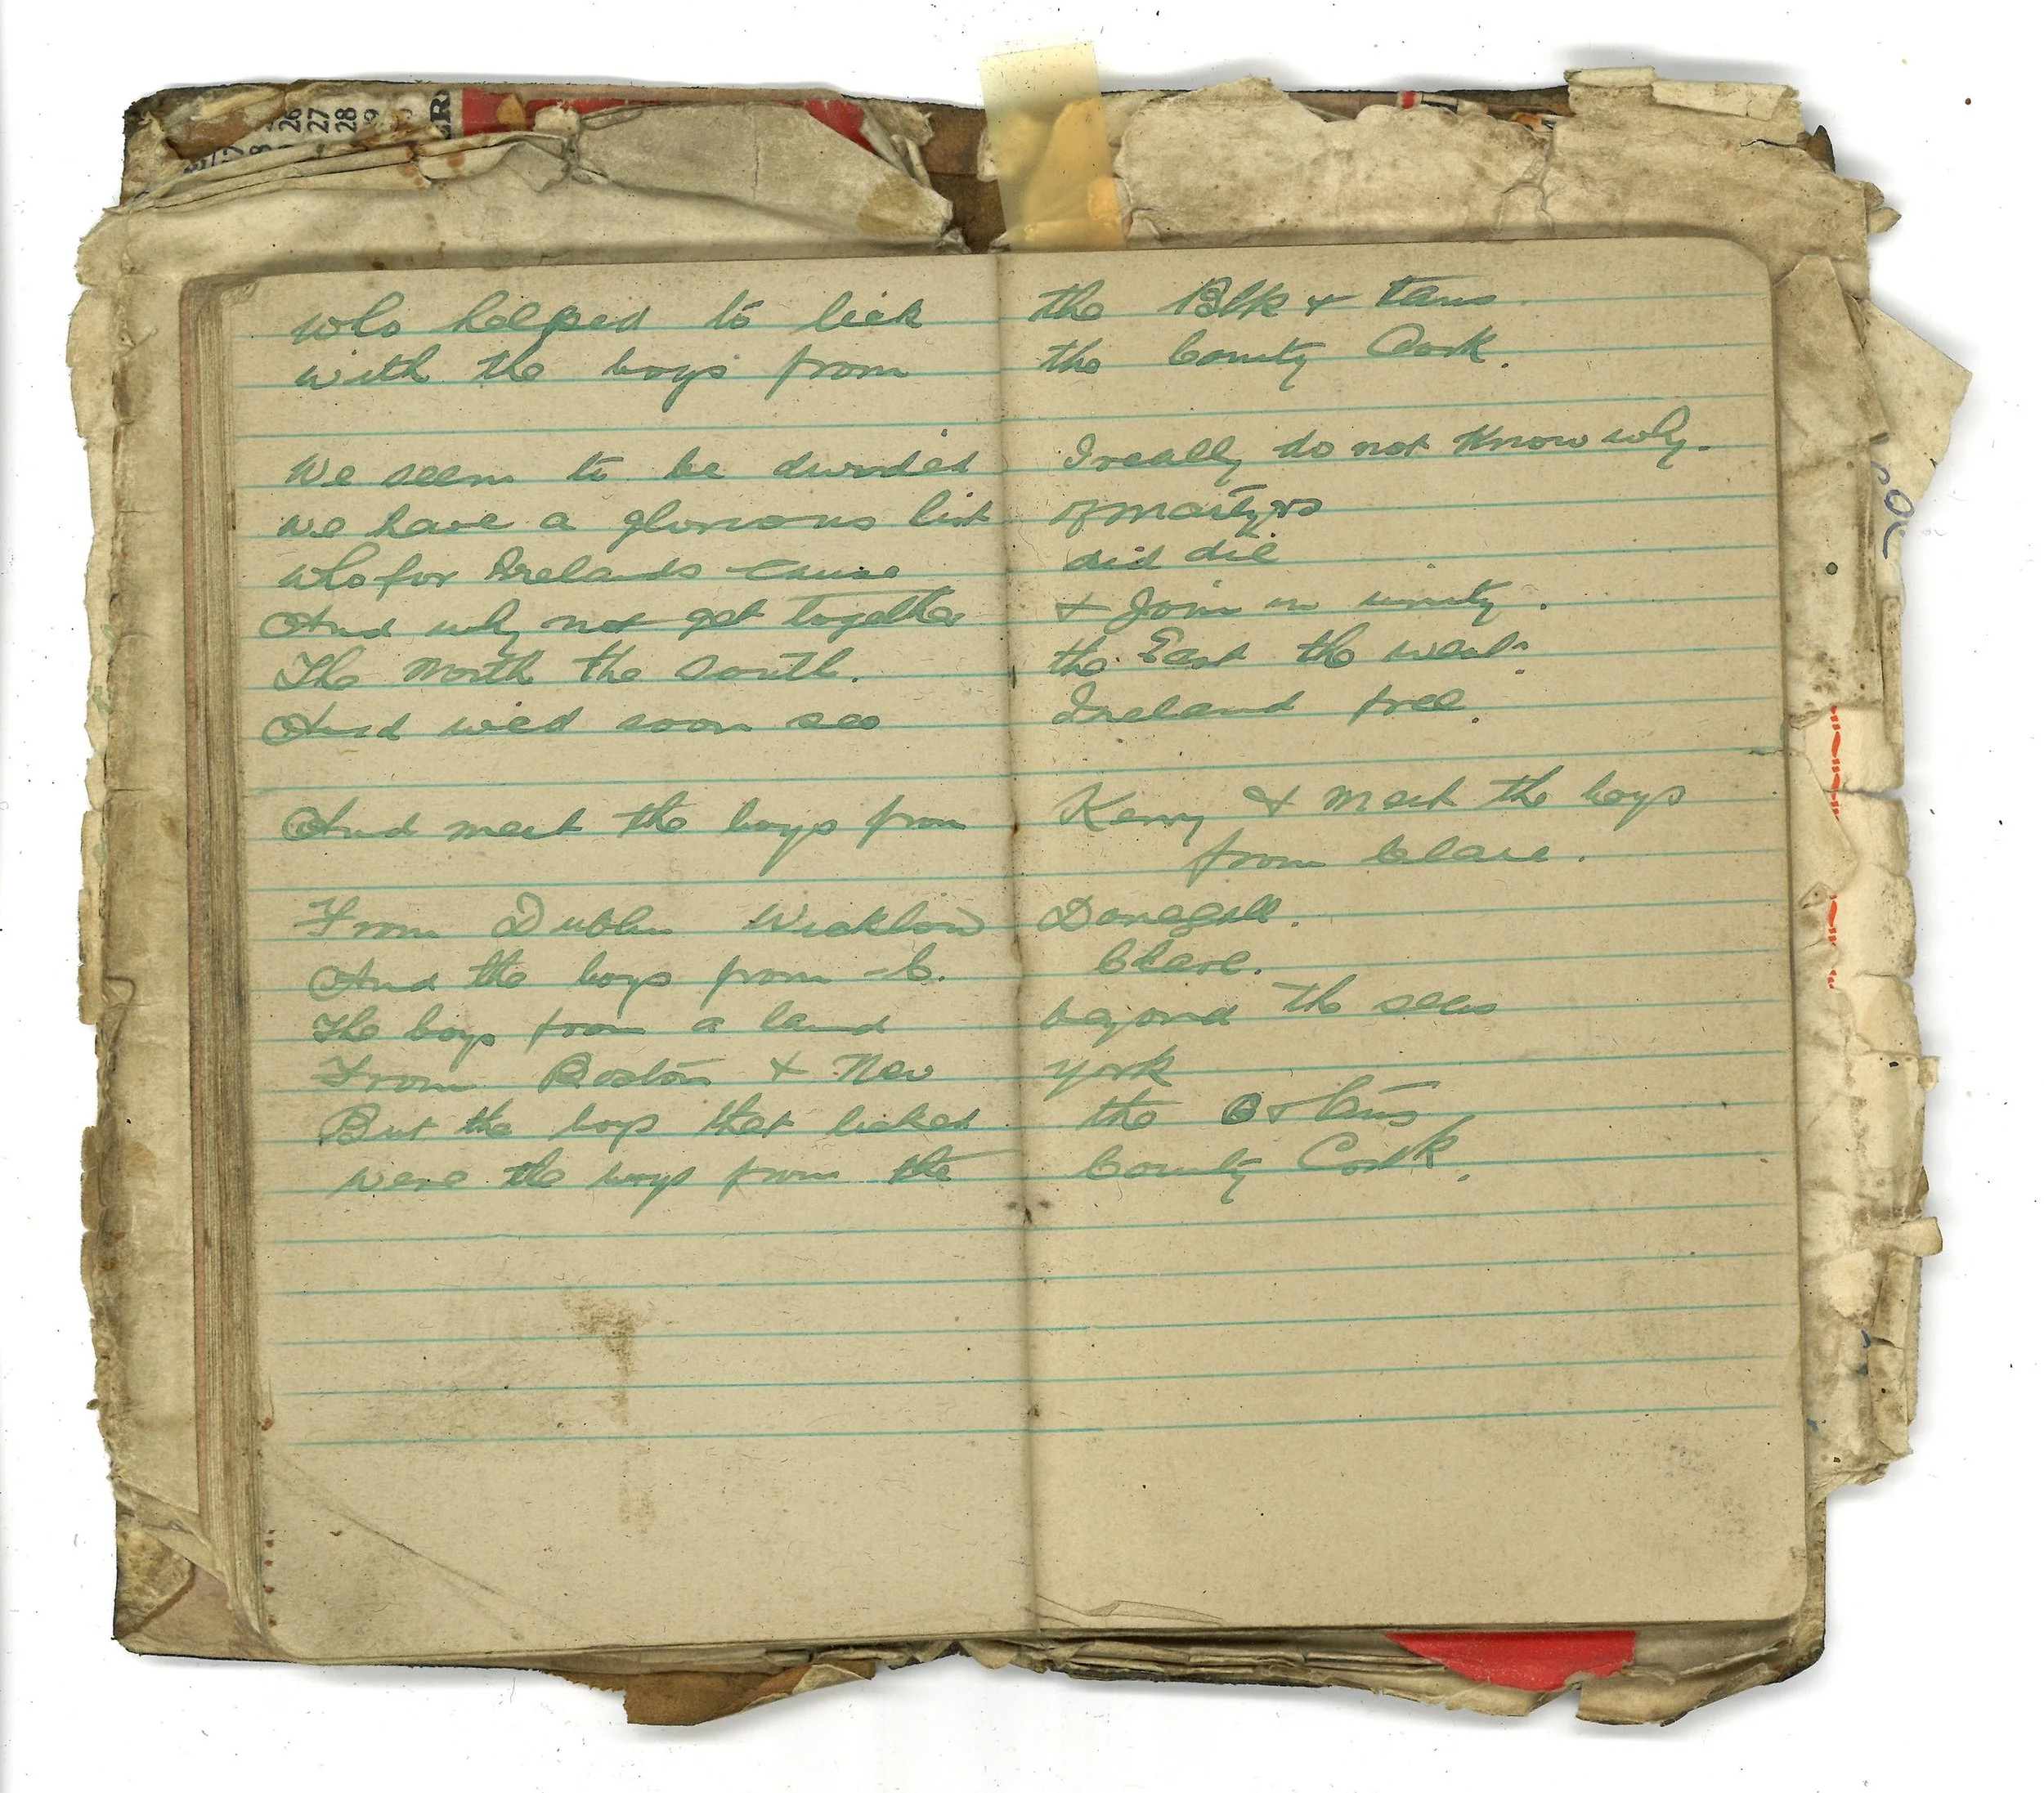 26
27
28
who helped to lick the Blk & tans.
with the boys from the County Cork.
We seem to be divided I really do not know why.
we have a glorious list of martyrs
who for Irelands cause did die
And why not get together & Join in unity.
The North the South. the East the west.
And we'd soon see Ireland free.
And meet the boys from Kerry & meet the boys
from Clare.
From Dublin Wicklow Donegall.
And the boys from C. Clare.
The boys from a land beyond the seas
From Boston & New york
But the boys that licked the B & tans
were the boys from the County Cork.